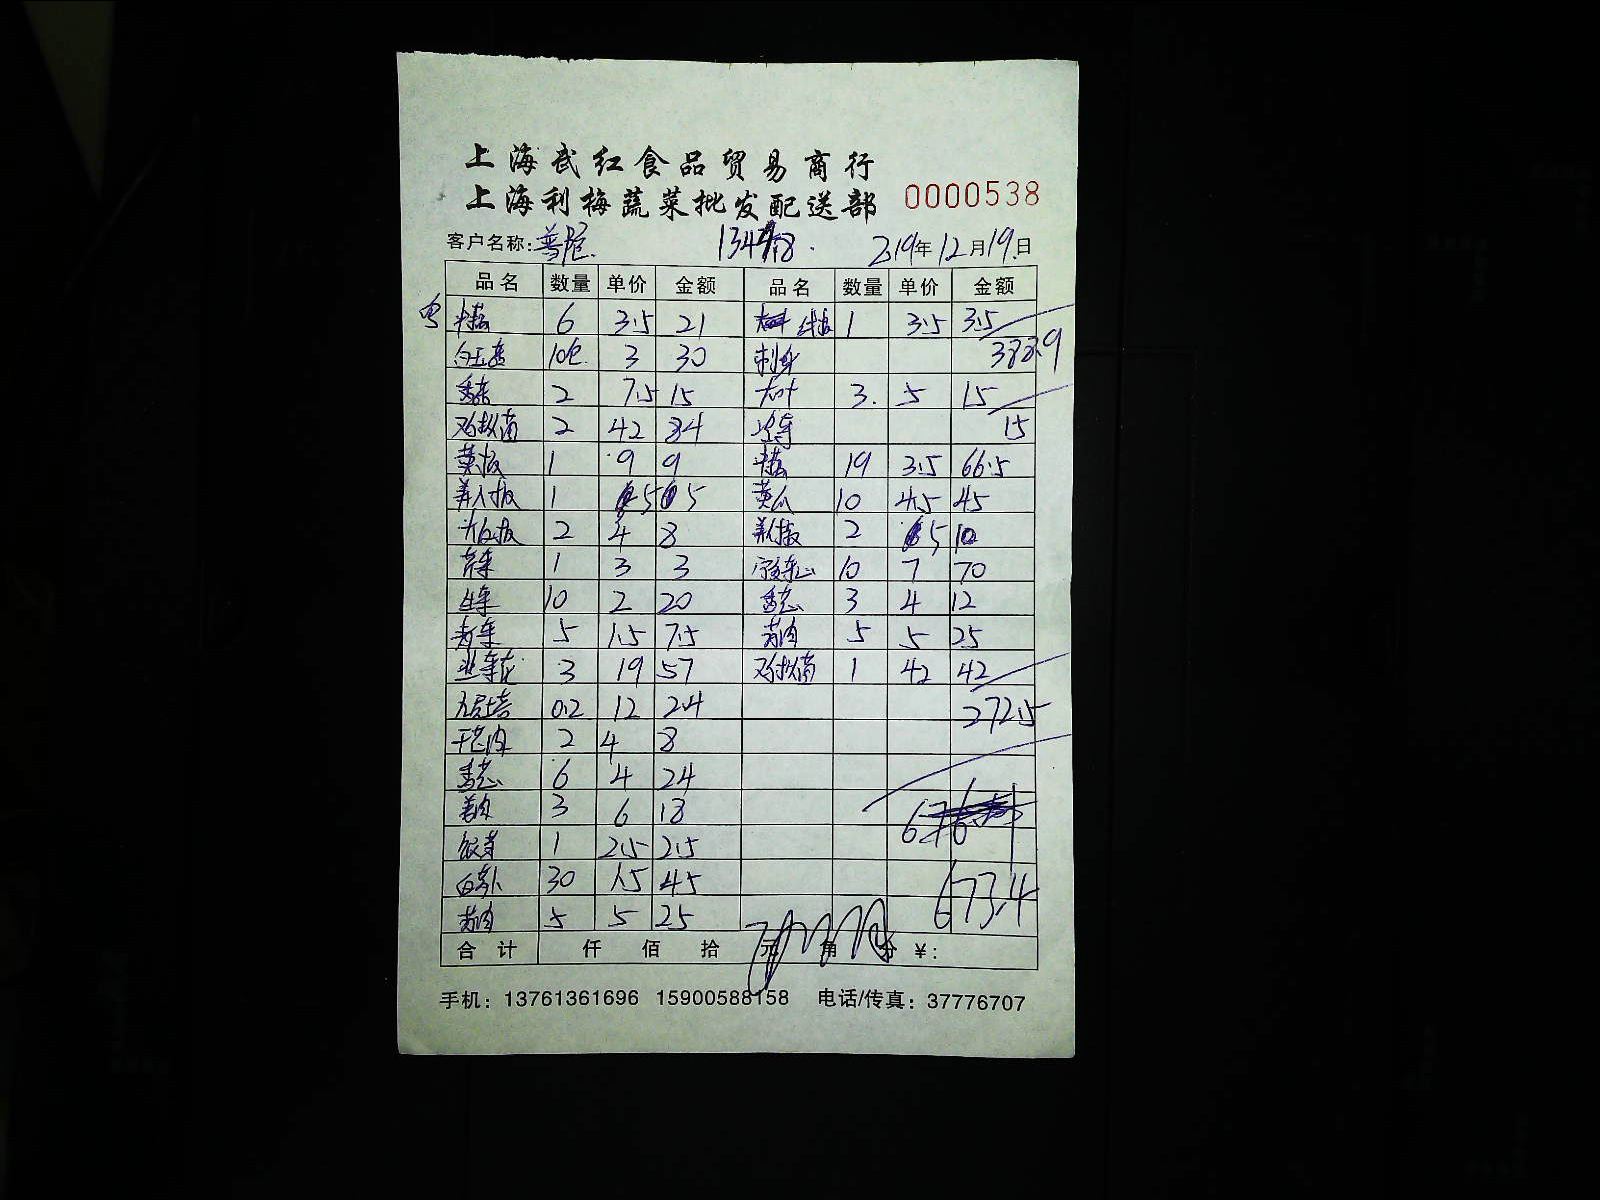 上海武红食品贸易商行
上海利梅蔬菜批发配送部 0000538
客户名称:普陀 2019年12月19日
品名 数量 单价 金额 品名 数量 单价 金额
6 3.5 21 1 3.5 3.5
白玉菇 10包 3 30 刺身 383.9
香菜 2 7.5 15 大叶 3 5 15
鸡枞菌 2 42 84 15
黄椒 1 9 9 19 3.5 66.5
美人椒 1 5 5 黄瓜 10 4.5 45
2 4 8 美人椒 2 5 10
芹菜 1 3 3 10 7 70
生菜 10 2 20 香葱 3 4 12
青菜 5 1.5 7.5 5 5 25
韭菜花 3 19 57 鸡枞菌 1 42 42
0.2 12 2.4 272.5
干葱肉 2 4 8
香葱 6 4 24
姜肉 3 6 18
银芽 1 2.5 2.5
白萝卜 30 1.5 45 673.4
5 5 25
合计 仟 佰 拾 元 角 分 ¥:
手机: 13761361696 15900588158 电话/传真: 37776707